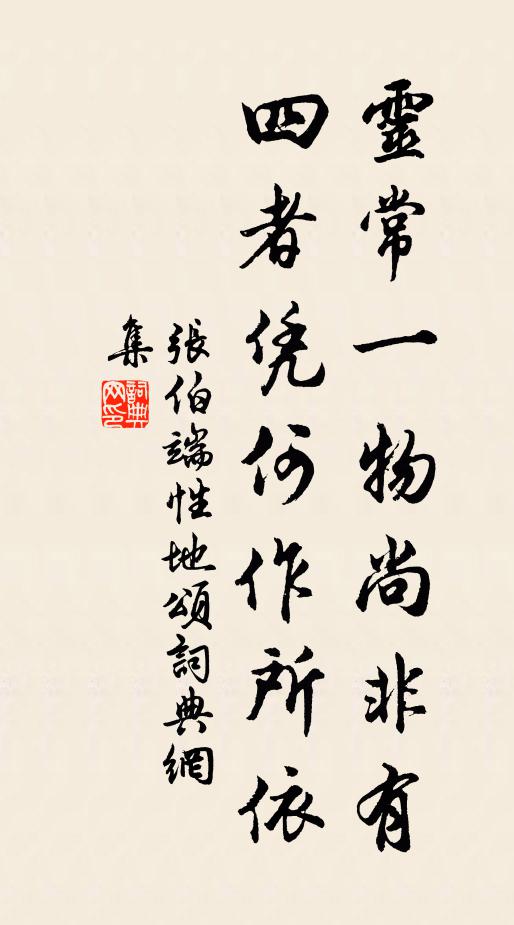 靈常一物尚非有
四者凭何作所依
張伯端性地頌詞典網
集
詞典
网印